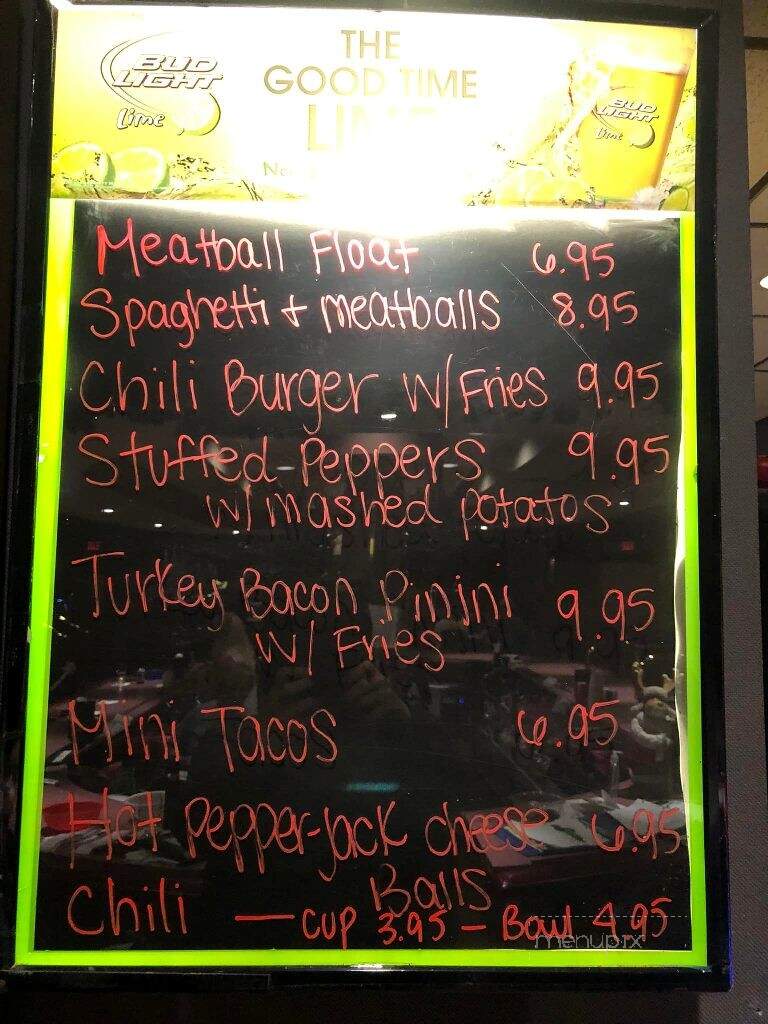 BUD
LIGHT
Lime
THE
GOOD TIME
LIME
BUD
LIGHT
Lime
Meatball Float 6.95
Spaghetti + meatballs 8.95
Chili Burger w/Fries 9.95
Stuffed Peppers 9.95
w/mashed potatos
Turkey Bacon Pinini 9.95
w/ Fries
Mini Tacos 6.95
Hot Pepper-jack cheese 6.95
Balls
Chili — cup 3.95 — Bowl 4.95
menupix